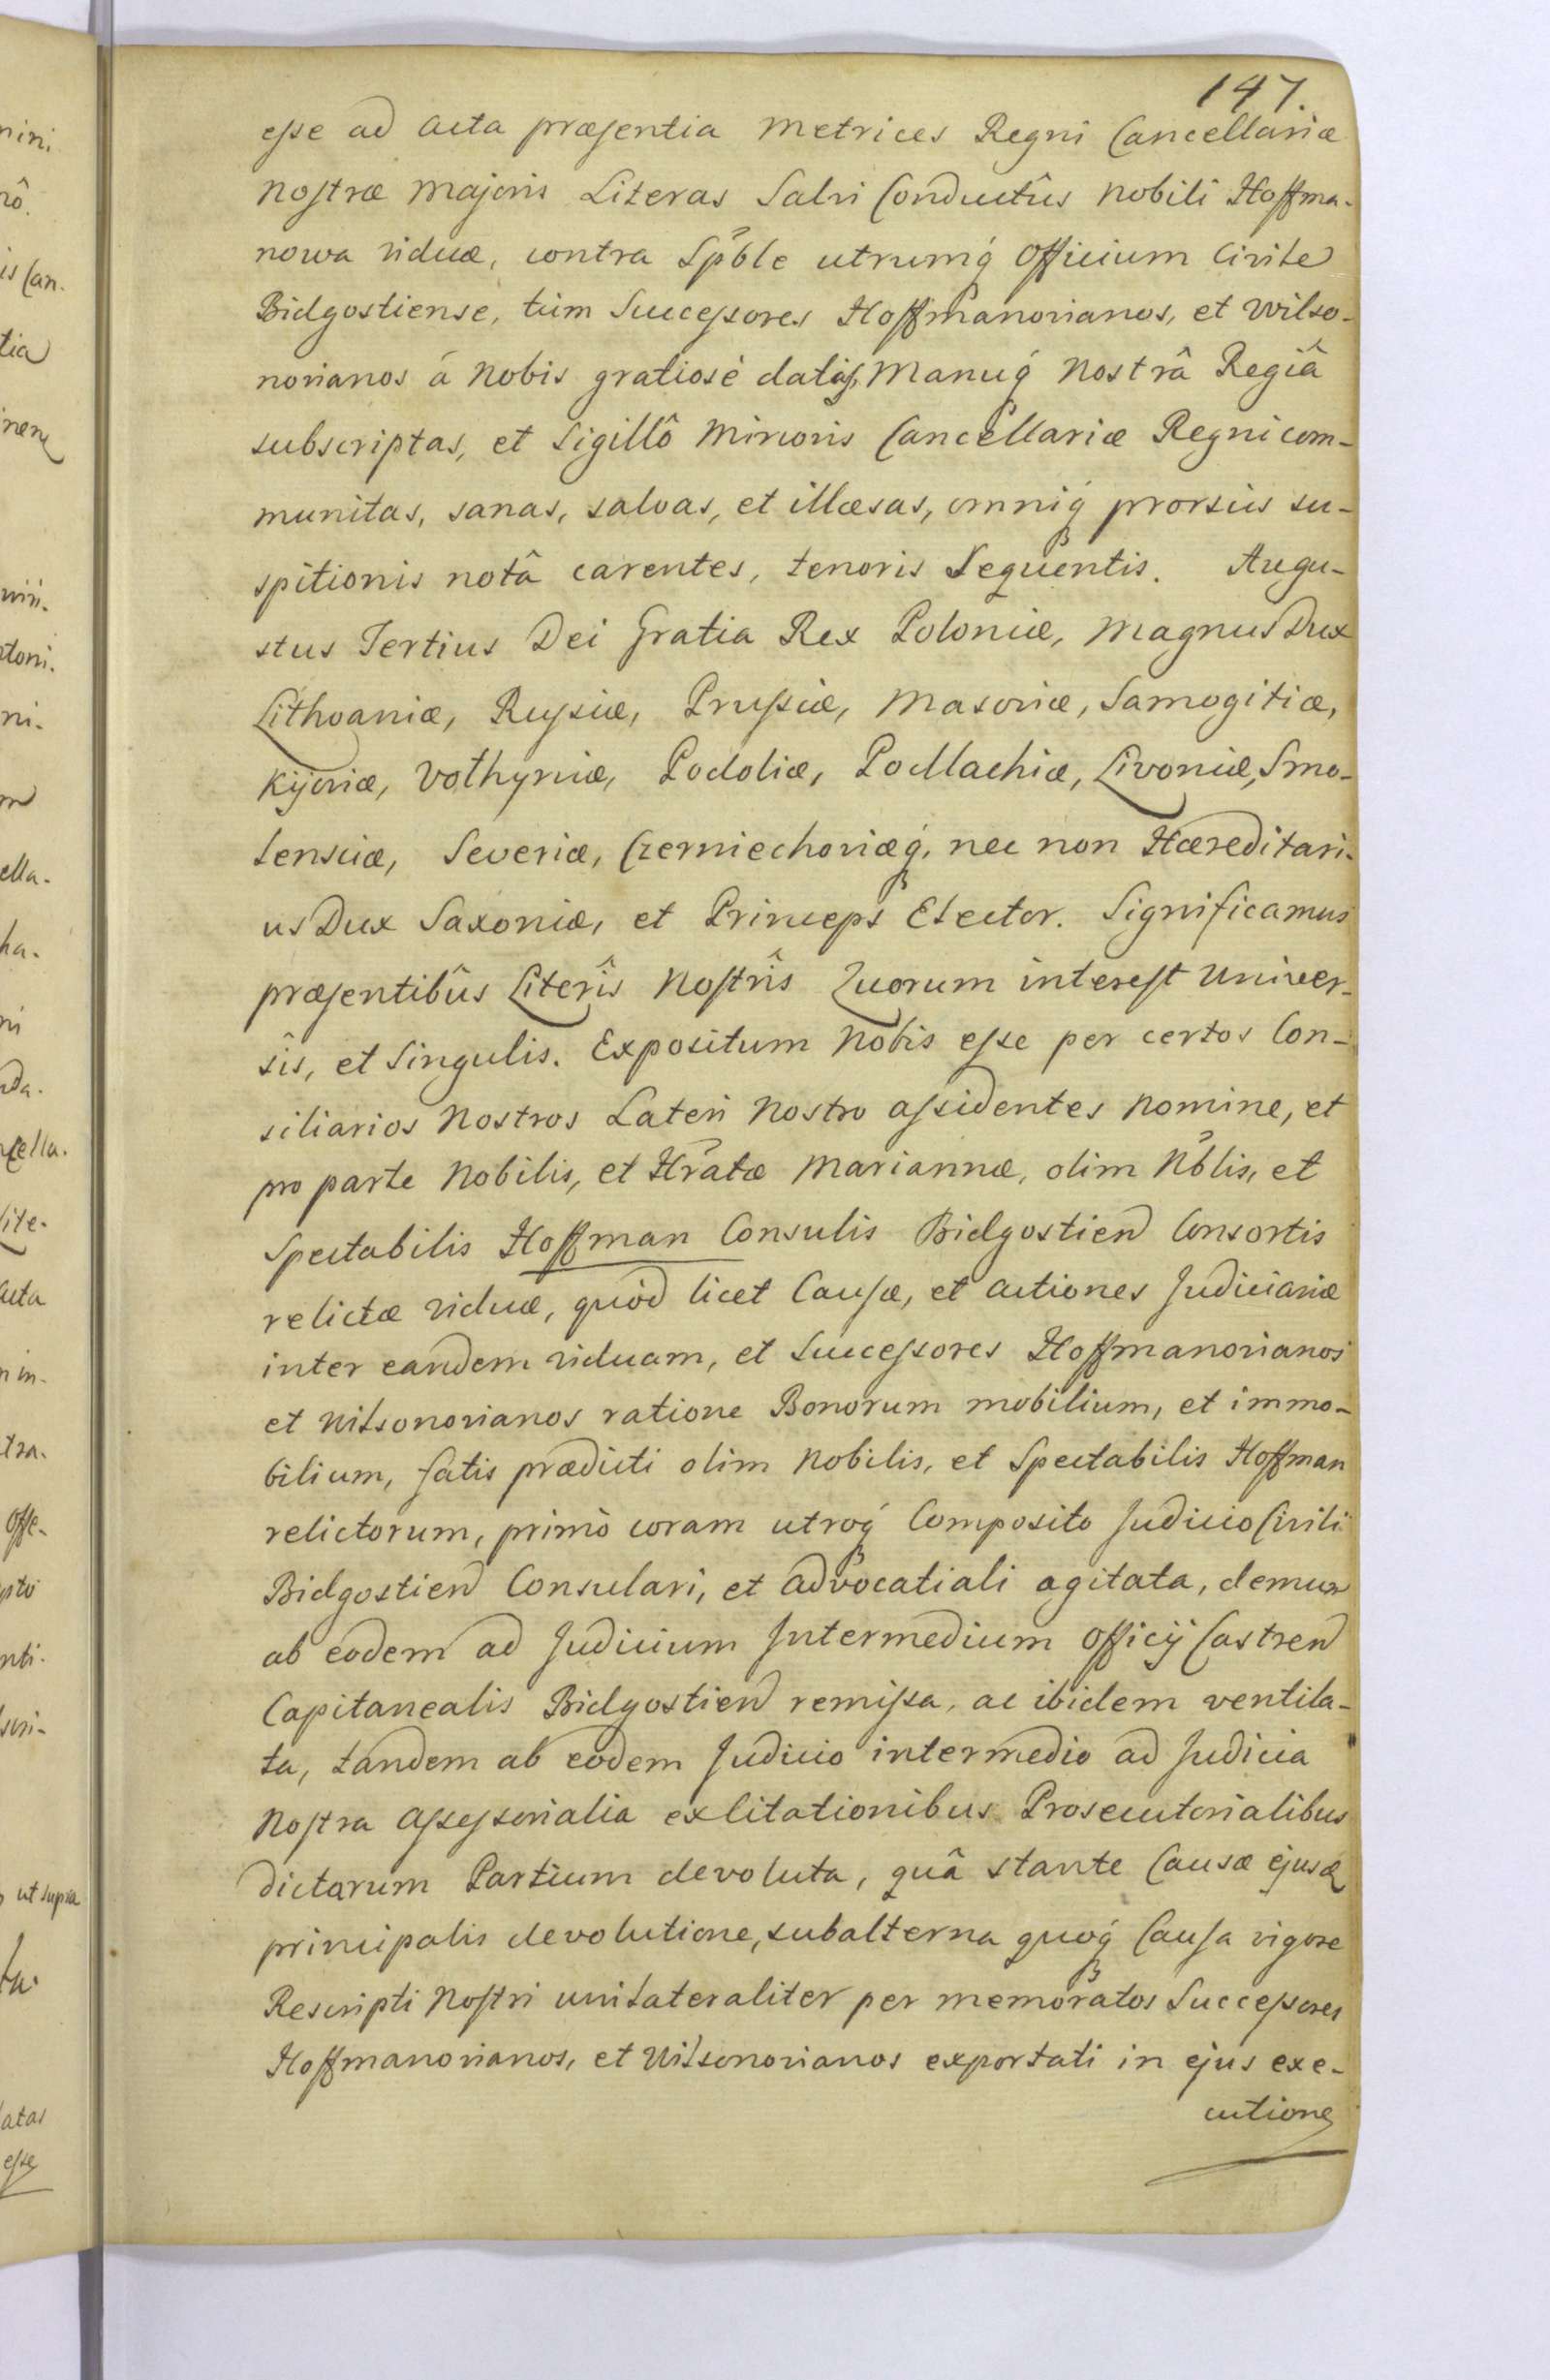 147.
esse ad acta præsentia Metrices Regni Cancellariæ
Nostræ Majoris Literas Salvi Conductûs Nobili Hoffma-
nowa viduæ, contra Spble utrumq́ Officium Civile
Bidgostiense, tùm Successores Hoffmanovianos, et Wilso-
novianos á Nobis gratiosè datas, Manuq́ Nostrâ Regiâ
subscriptas, et Sigillô Minoris Cancellariæ Regni com-
munitas, sanas, salvas, et illæsas, omniq́ prorsùs su-
spitionis notâ carentes, tenoris Sequentis. Augu-
stus Tertius Dei Gratia Rex Poloniæ, Magnus Dux
Lithvaniæ, Russiæ, Prussiæ, Masoviæ, Samogitiæ,
Kijoviæ, Volhyniæ, Podoliæ, Podlachiæ, Livoniæ, Smo-
lensciæ, Severiæ, Czerniechoviæq́, nec non Hæreditari-
us Dux Saxoniæ, et Princeps Elector. Significamus
præsentibûs Literîs Nostrîs Quorum interest Univer-
sîs, et Singulis. Expositum Nobis esse per certos Con-
siliarios Nostros Lateri Nostro assidentes nomine, et
pro parte Nobilis, et Hratæ Mariannæ, olim Nblis, et
Spectabilis Hoffman Consulis Bidgostien Consortis
relictæ viduæ, quòd licet Causæ, et actiones Judiciariæ
inter eandem viduam, et Successores Hoffmanovianos
et Wilsonovianos ratione Bonorum mobilium, et immo-
bilium, fatis prædicti olim Nobilis, et Spectabilis Hoffman
relictorum, primò coram utroq́ Composito Judicio Civili
Bidgostien Consulari, et Advocatiali agitata, demum
ab eodem ad Judicium Intermedium Officij Castren
Capitanealis Bidgostien remissa, ac ibidem ventila-
ta, tandem ab eodem Judicio intermedio ad Judicia
Nostra Assessorialia exlitationibus Prosecutorialibus
dictarum Partium devoluta, quâ stante Causæ ejusd
principalis devolutione, subalterna quoq́ Causa vigore
Rescripti Nostri unilateraliter per memoratos Successores
Hoffmanovianos, et Wilsonovianos exportati in ejus exe-
cutione